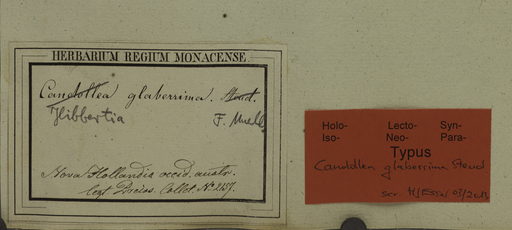 HERBARIUM REGIUM MONACENSE.
Candollea glaberrima. Steud.
Hibbertia F. Muell.
Nova Hollandia occid. austr.
Legt Preiss. Collet. No. 2157.
Holo- Lecto- Syn-
Iso- Neo- Para-
Typus
Candollea glaberrima Steud